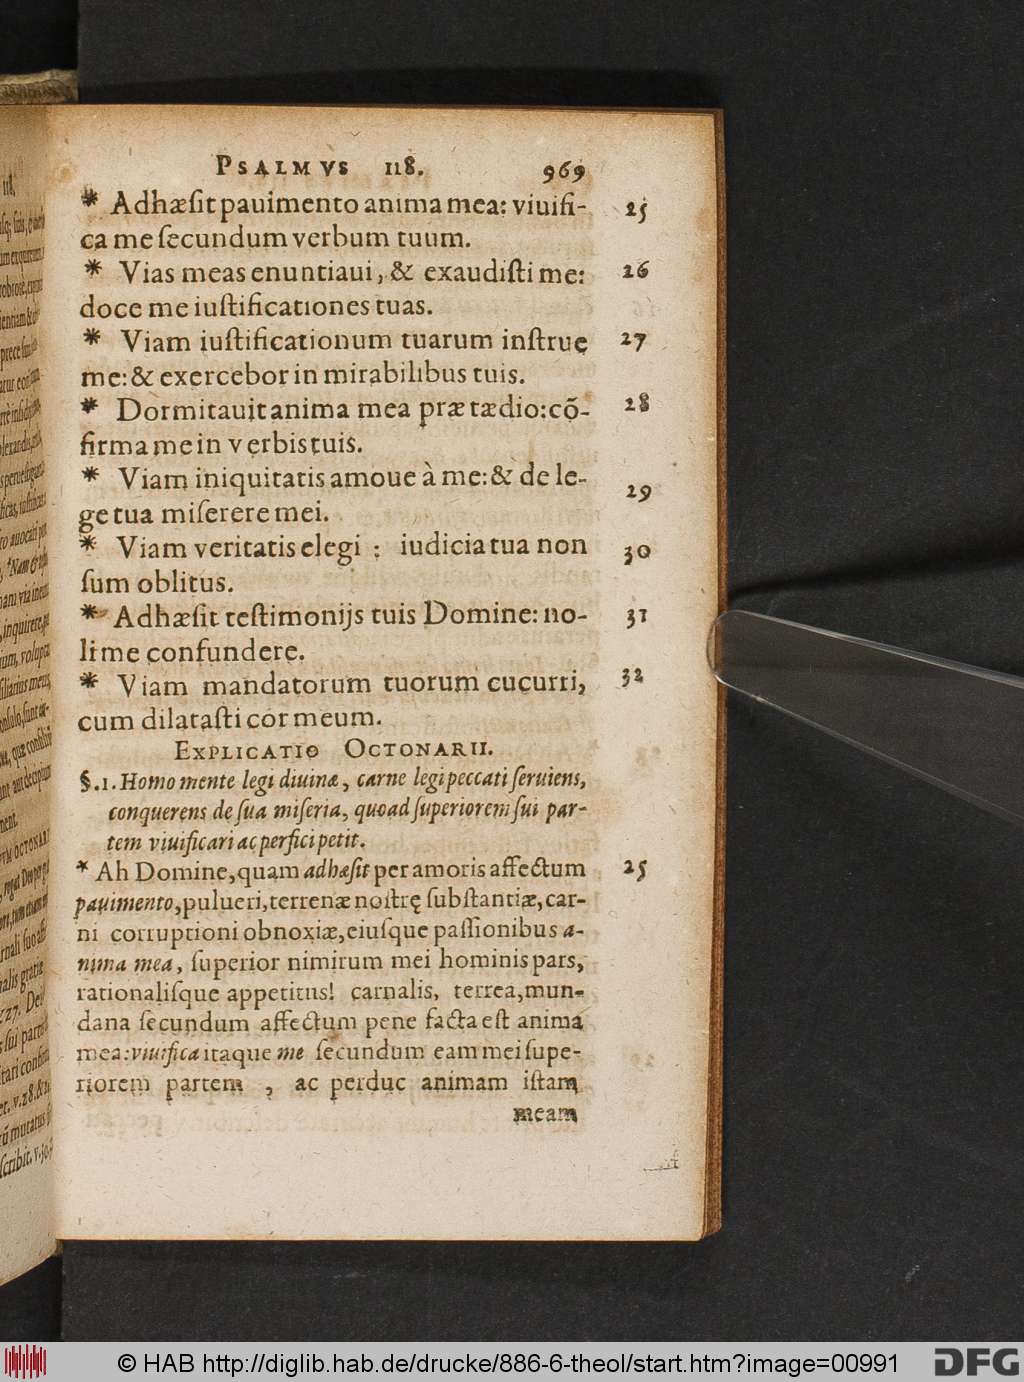 PSALMVS 118. 969
* Adhæſit pauimento anima mea: viuifi- 25
ca me ſecundum verbum tuum.
* Vias meas enuntiaui, & exaudiſti me: 26
doce me iuſtificationes tuas.
* Viam iuſtificationum tuarum inſtrue 27
me: & exercebor in mirabilibus tuis.
* Dormitauit anima mea præ tædio: cõ- 28
firma me in verbis tuis.
* Viam iniquitatis amoue à me: & de le- 29
ge tua miſerere mei.
* Viam veritatis elegi : iudicia tua non 30
ſum oblitus.
* Adhæſit teſtimonijs tuis Domine: no- 31
li me confundere.
* Viam mandatorum tuorum cucurri, 32
cum dilataſti cor meum.
EXPLICATIO OCTONARII.
§.1. Homo mente legi diuinæ, carne legi peccati ſeruiens,
conquerens de ſua miſeria, quoad ſuperiorem ſui par-
tem viuificari ac perfici petit.
* Ah Domine, quam adhæſit per amoris affectum 25
pauimento, pulueri, terrenæ noſtrę ſubſtantiæ, car-
ni corruptioni obnoxiæ, eiuſque paſſionibus a-
nima mea, ſuperior nimirum mei hominis pars,
rationaliſque appetitus! carnalis, terrea, mun-
dana ſecundum affectum pene facta eſt anima
mea: viuifica itaque me ſecundum eam mei ſupe-
riorem partem , ac perduc animam iſtam
meam
© HAB http://diglib.hab.de/drucke/886-6-theol/start.htm?image=00991
DFG